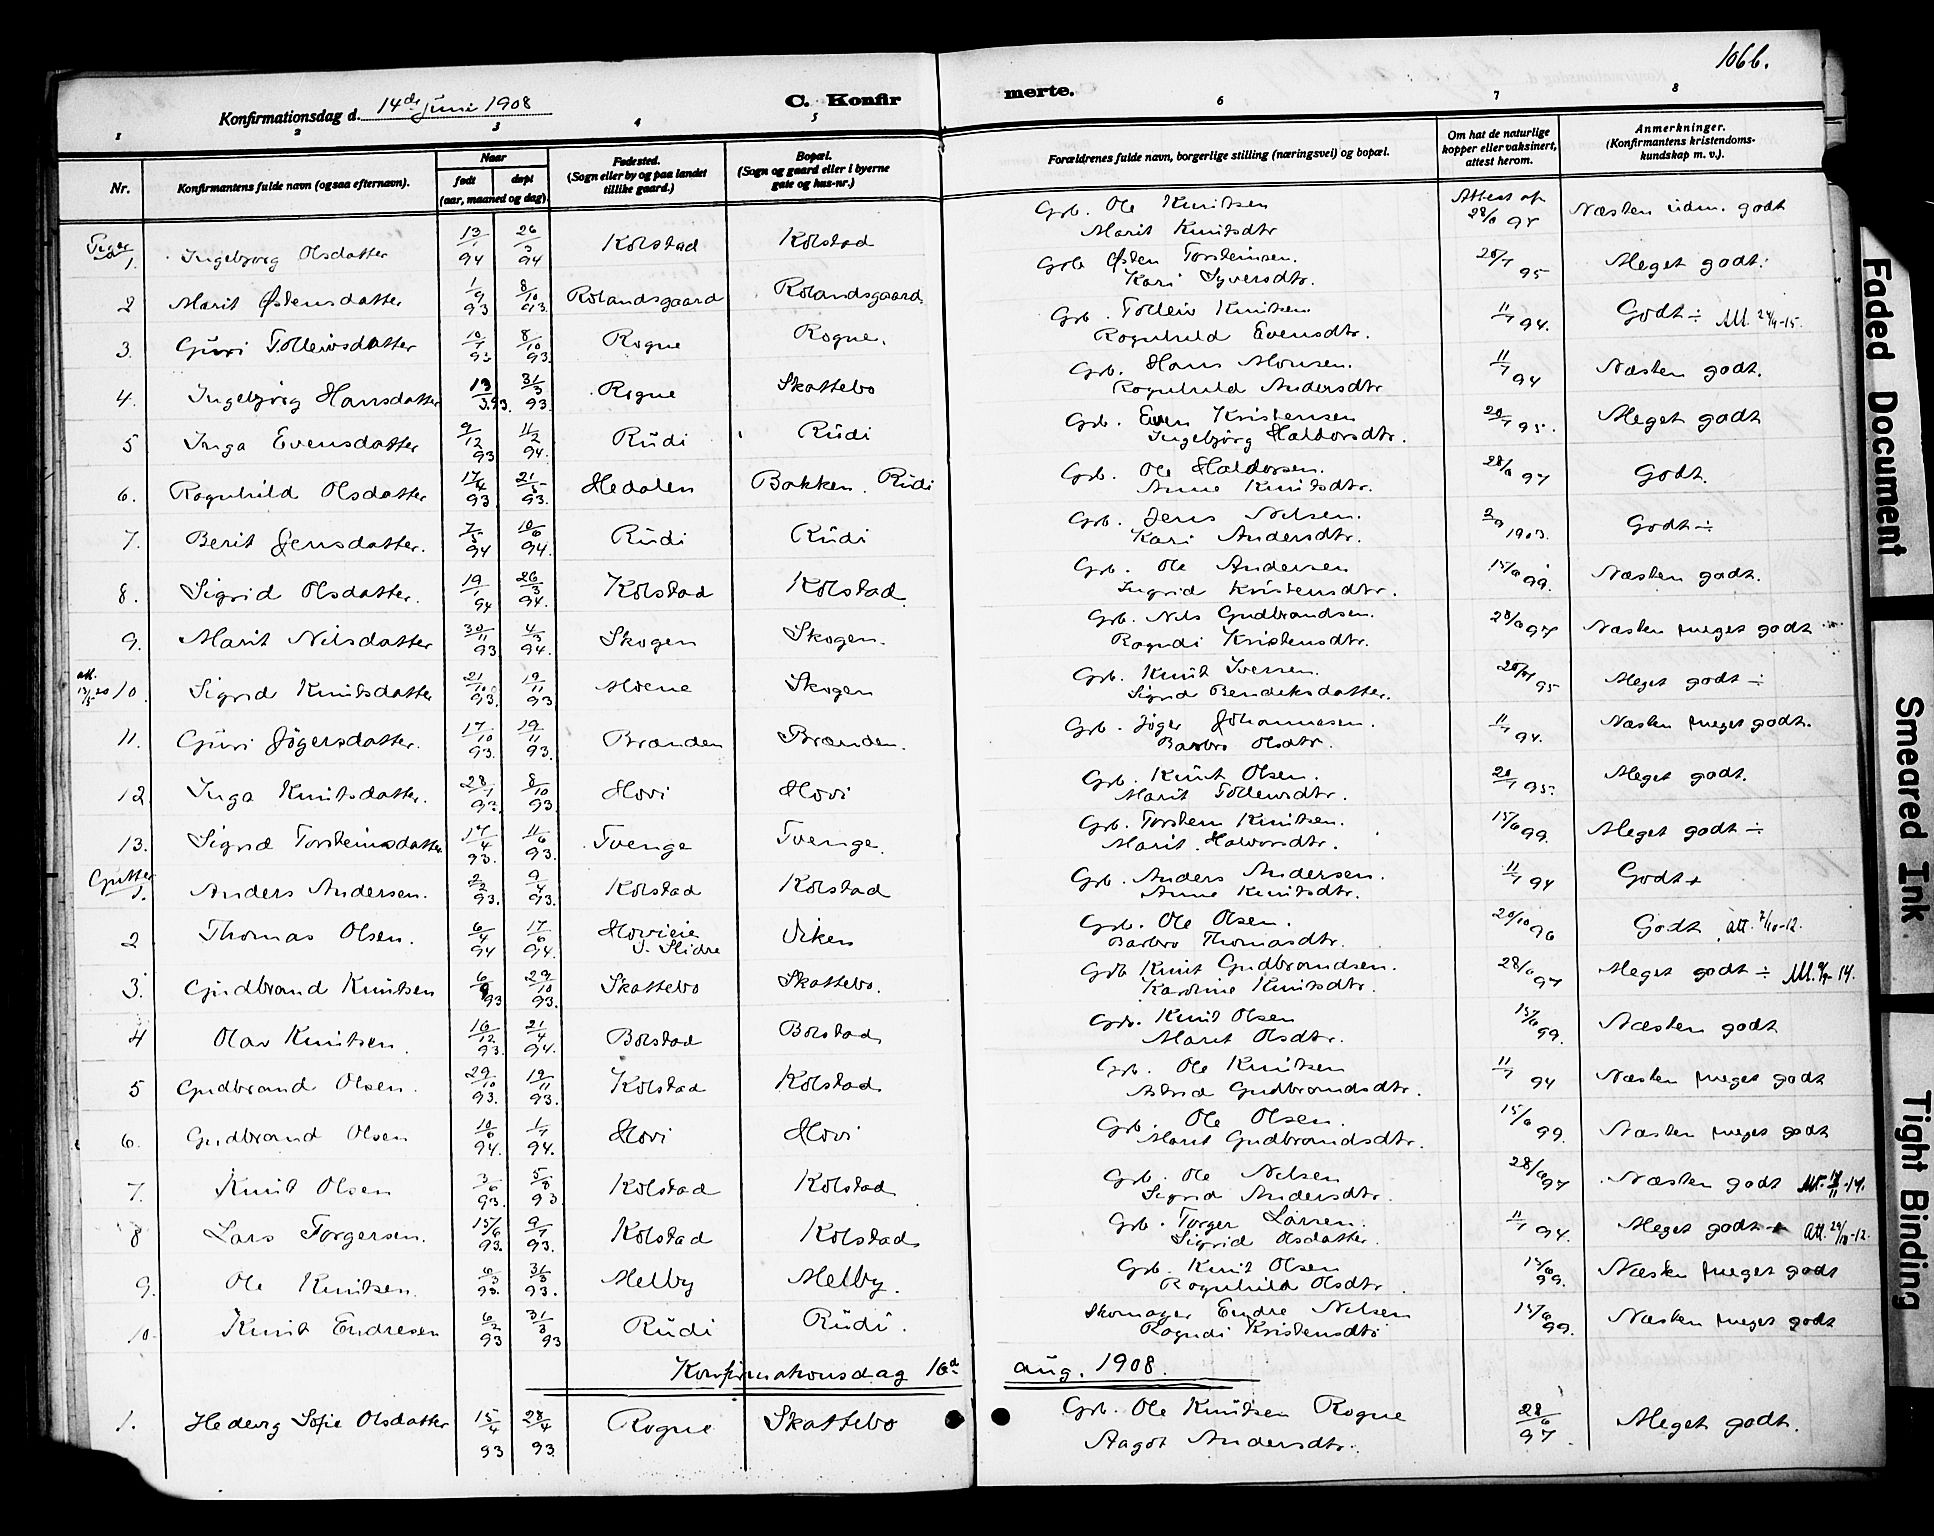 106b.
Konfirmationsdag d. 14de juni 1908
C. Konfirmerte.
1 2 3 4 5 6 7 8
Nr.
Konfirmantens fulde navn (ogsaa efternavn).
Naar
født døpt
(aar, maaned og dag)
Fødested.
(Sogn eller by og paa landet
tillike gaard.)
Bopæl.
(Sogn og gaard eller i byerne
gate og hus-nr.)
Forældrenes fulde navn, borgerlige stilling (næringsvei) og bopæl.
Om hat de naturlige
kopper eller vaksinert,
attest herom.
Anmerkninger.
(Konfirmantens kristendoms-
kundskap m. v.).
1. Ingebjørg Olsdatter 13/1 94 26/3 94 Kolstad Kolstad Grb. Ole Knutsen Marit Knutsdtr Attest af 28/6 97 Næsten udm. godt
2 Marit Østensdatter 1/9 93 8/10 93 Rolandsgaard Rolandsgaard Grb Østen Torsteinsen. Kari Syversdtr. 95 Meget godt.
3. Guri Tolleivsdatter 93 8/10 93. Rogne Rogne. Grb. Tolleiv Knutsen Ragnhild Evensdtr. 11/7 94. Godt ÷
4. Ingebjørg Hansdatter 13/3 93. 31/3 93. Rogne Skattebo Grb. Hans Monsen. Ragnhild Andersdtr 11/7 94 Næsten godt.
5 Inga Evensdatter 9/12 93 11/2 94. Rudi Rudi Grb. Even Kristensen Ingebjørg Haldorsdtr. 95. Meget godt
6. Ragnhild Olsdatter 17/4 93 21/5 93. Hedalen Bakken. Rudi Grb. Ole Haldorsen. Anne Knutsdtr. 28/6 97 Godt.
7. Berit Jensdatter. 7/5 94 10/6 94. Rudi Rudi Grb. Jens Nilsen. Kari Andersdtr. 1903. Godt ÷
8. Sigrid Olsdatter. 19/1 94 26/3 94. Kolstad Kolstad Grb. Ole Andersen Ingrid Kristensdtr. 15/6 99. Næsten godt.
9. Marit Nilsdatter 30/11 93 4/3 94. Skogen Skogen. Grb. Nils Gudbrandsen. Ragndi Kristensdtr. 28/6 97 Næsten meget godt
10. Sigrid Knutsdatter 21/10 93. 19/11 93 Moene Skogen Grb. Knut Iversen. Sigrid Bendiksdatter. 95 Meget godt ÷
11. Guri Jøgersdatter. 17/10 93. 19/11 93. Branden Branden. Grb. Jøger Johannesen. Barbro Olsdtr. 11/7 94. Næsten meget godt.
12. Inga Knutsdatter. 93. 8/10 93 Hovi Hovi Grb. Knut Olsen. Marit Tolleivsdtr. 95. Meget godt.
13. Sigrid Torsteinsdatter 17/4 93. 11/6 93. Tvenge Tvenge. Grb. Torstein Knutsen. Marit Halvorsdtr. 15/6 99. Meget godt ÷
Gutter
1. Anders Andersen. 2/2 93. 9/4 93. Kolstad Kolstad Grb. Anders Andersen. Anne Knutsdtr. 11/7 94 Godt +
2 Thomas Olsen. 6/4 94 17/6 94. Hovieie V. Slidre Viken Grb. Ole Olsen. Barbro Thomasdtr. 20/10 96 Godt att. 7/10-12.
3. Gudbrand Knutsen 93 29/10 93. Skattebo Skattebo. Grb Knut Gudbrandsen. Karoline Knutsdtr. 28/6 97 Meget godt ÷
4 Olav Knutsen. 16/12 93. 21/4 94. Bolstad Bolstad Grb. Knut Olsen Marit Olsdtr. 15/6 99. Næsten godt
5 Gudbrand Olsen. 29/10 93. 19/11 93. Kolstad Kolstad Grb. Ole Knutsen Astrid Gudbrandsdtr. 11/7 94 Næsten meget godt
6. Gudbrand Olsen 10/6 94. 1/7 94. Hovi Hovi Grb. Ole Olsen. Marit Gudbrandsdtr. 15/6 99. Næsten meget godt
7. Knut Olsen 3/6 93. 5/8 93 Kolstad Kolstad Grb. Ole Nilsen Sigrid Andersdtr. 28/6 97 Næsten godt
8 Lars Torgersen. 15/6 93. 9/7 93. Kolstad Kolstad Grb. Torger Larsen. Sigrid Olsdatter. 11/7 94. Meget godt + att. 29/10-12.
9. Ole Knutsen. 6/3 93. 31/3 93. Melby Melby. Grb. Knut Olsen Ragnhild Olsdtr. 15/6 99. Næsten meget godt
10. Knut Endresen 6/2 93 31/3 93 Rudi Rudi. Skomager Endre Nilsen Ragndi Kristensdtr 15/6 99. Næsten meget godt
Konfirmationsdag 16d aug. 1908.
1. Hedevig Sofie Olsdatter 15/4 93 28/4 93 Rogne Skattebo Grb. Ole Knutsen Rogne Aagot Andersdtr. 28/6 97. Meget godt.
Faded Document
Smeared Ink
Tight Binding